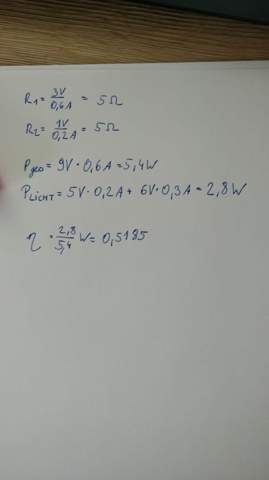 R1 = 3V/0,6A = 5Ω
R2 = 1V/0,2A = 5Ω
Pges = 9V · 0,6A = 5,4W
PLICHT = 5V · 0,2A + 6V · 0,3A = 2,8W
η = 2,8/5,4 W = 0,5185